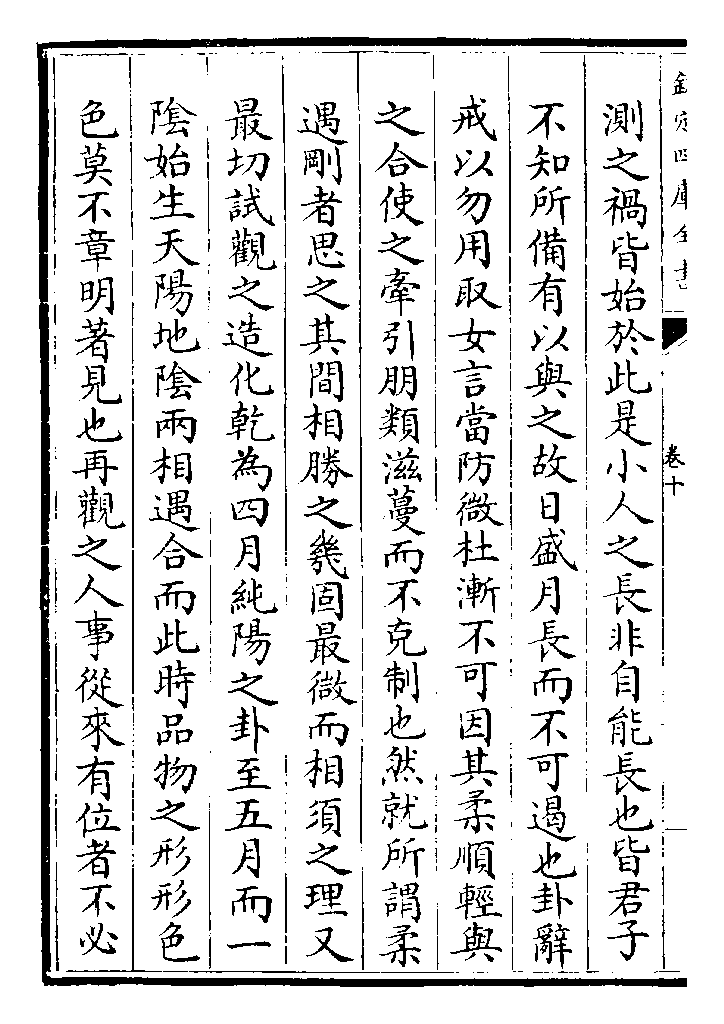 欽定四庫全書
卷十
測之禍皆始於此是小人之長非自能長也皆君子
不知所備有以與之故日盛月長而不可遏也卦辭
戒以勿用取女言當防微杜漸不可因其柔順輕與
之合使之牽引朋類滋蔓而不克制也然就所謂柔
遇剛者思之其間相勝之幾固最微而相須之理又
最切試觀之造化乾為四月純陽之卦至五月而一
陰始生天陽地陰兩相遇合而此時品物之形形色
色莫不章明著見也再觀之人事從來有位者不必